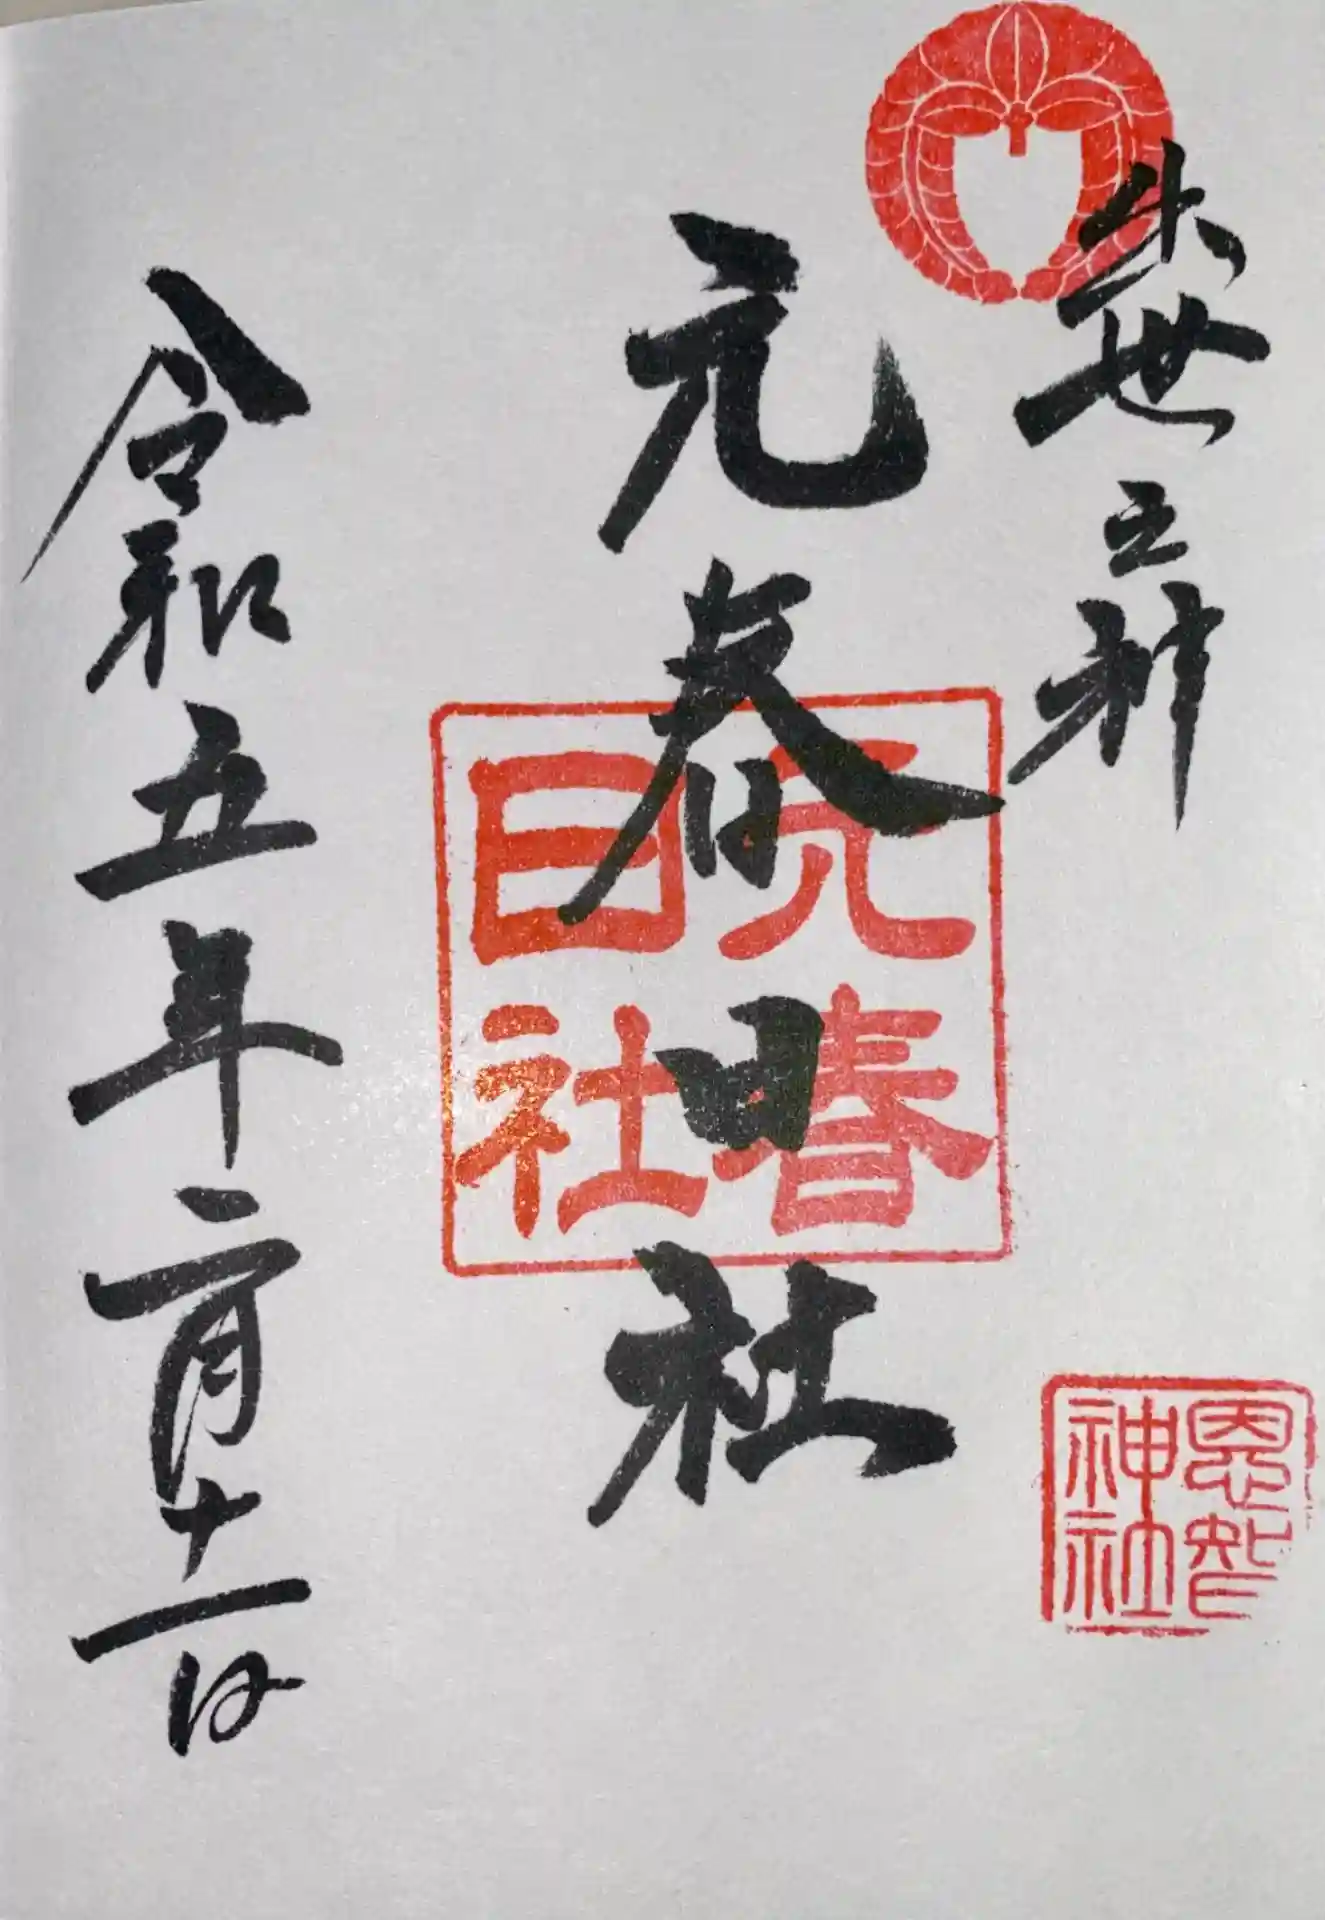 出世之神
元春日社
元春日社
恩智神社
令和五年二月十二日